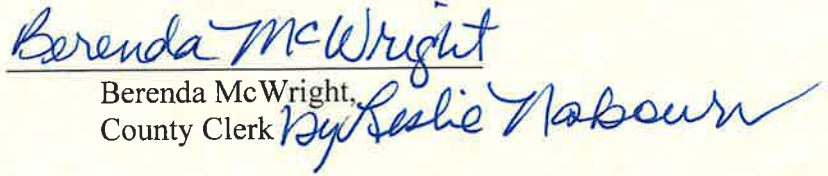 Berenda McWright
Berenda McWright,
County Clerk by Leslie Nabourn